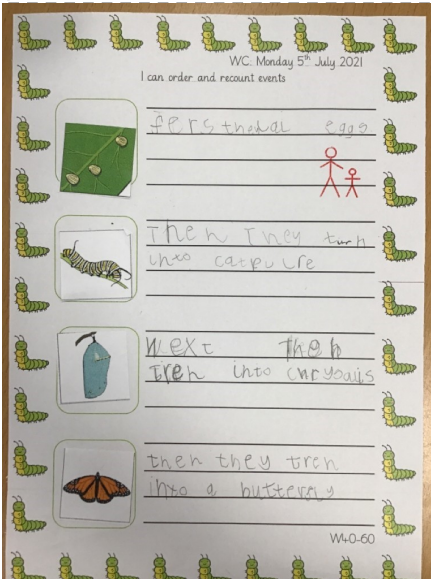 WC. Monday 5th July 2021
I can order and recount events
fers thay ar eggs
Then They turn
into catpulre
Next then
tren into chrysalis
then they tren
into a butterfly
W40-60